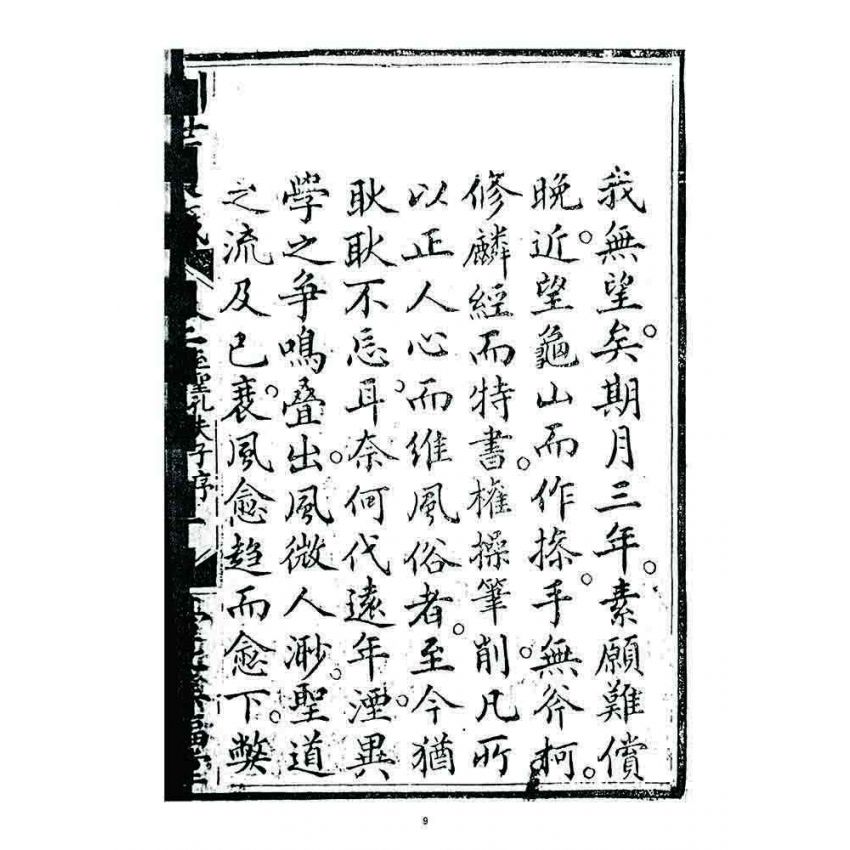 我無望矣。期月三年。素願難償
晚。近望龜山而作操。手無斧柯。
修麟經而特書。權操筆削。凡所
以正人心而維風俗者。至今猶
耿耿不忘耳。奈何代遠年湮。異
學之爭鳴叠出。風微人渺。聖道
之流及已衰。風愈趋而愈下。弊
至聖孔夫子序
9